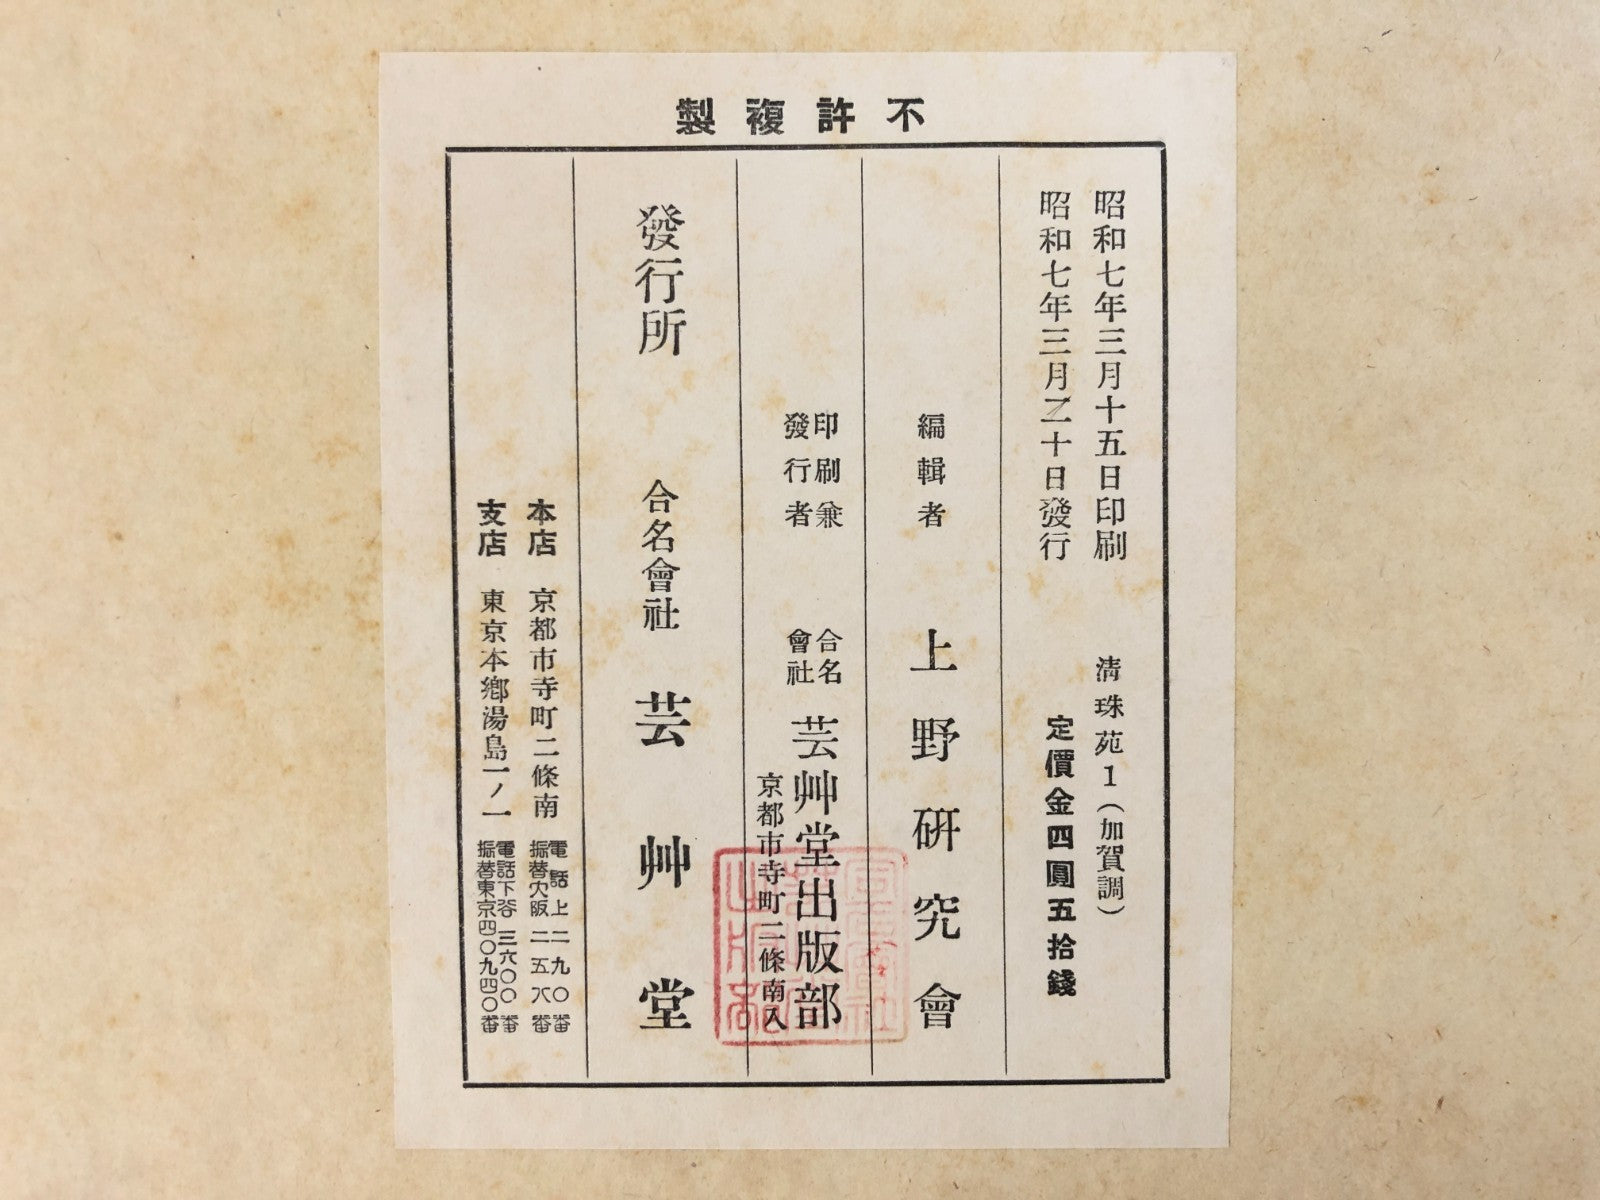 不許複製
昭和七年三月十五日印刷
昭和七年三月二十日發行
淸珠苑1(加賀調)
定價金四圓五拾錢
編輯者
上野硏究會
印刷兼
發行者
合名
會社
芸艸堂出版部
京都市寺町二條南入
發行所
合名會社
芸艸堂
本店
京都市寺町二條南
電話上二九〇番
振替大阪二五八番
支店
東京本鄕湯島一ノ一
電話下谷三六〇〇番
振替東京四〇九四〇番